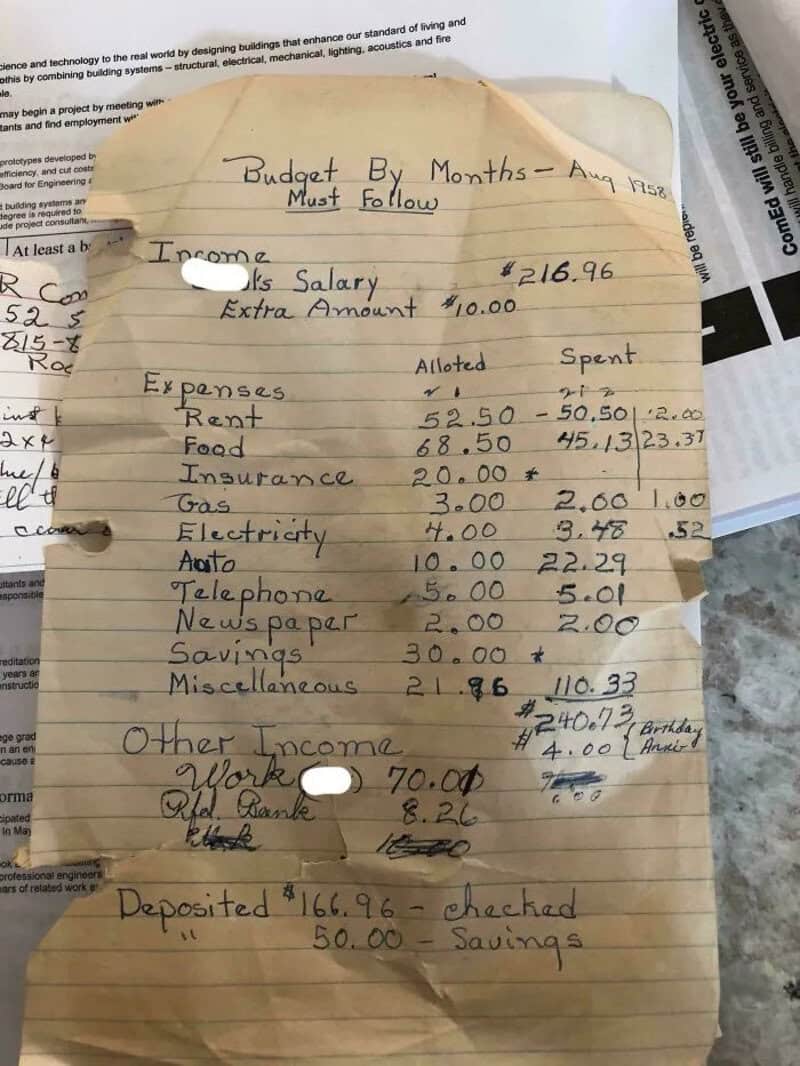 cience and technology to the real world by designing buildings that enhance our standard of living and
othis by combining building systems – structural, electrical, mechanical, lighting, acoustics and fire
may begin a project by meeting with
tants and find employment
prototypes developed by
efficiency, and cut costs
Board for Engineering
building systems an
degree is required to
ude project consultant,
At least a b
R Con
52 5
815-8
Roc
2x4
ultants and
esponsible
reditation
years an
nstructio
ege grad
n an en
cause
orma
cipated
In May
professional engineers
ars of related work e
ComEd will still be your electric
will handle billing and service as they
will be
Budget By Months – Aug 1958
Must Follow
Income
k's Salary $216.96
Extra Amount $10.00
Alloted Spent
Expenses
Rent 52.50 – 50.50 2.00
Food 68.50 45.13 23.37
Insurance 20.00 *
Gas 3.00 2.00 1.00
Electricity 4.00 3.48 .52
Auto 10.00 22.29
Telephone 5.00 5.01
Newspaper 2.00 2.00
Savings 30.00 *
Miscellaneous 21.96 110.33
$240.73
$4.00 { Birthday Anniv
Other Income
Work ( ) 70.00
Rfd. Bank 8.26
Deposited $166.96 – checked
" 50.00 – Savings